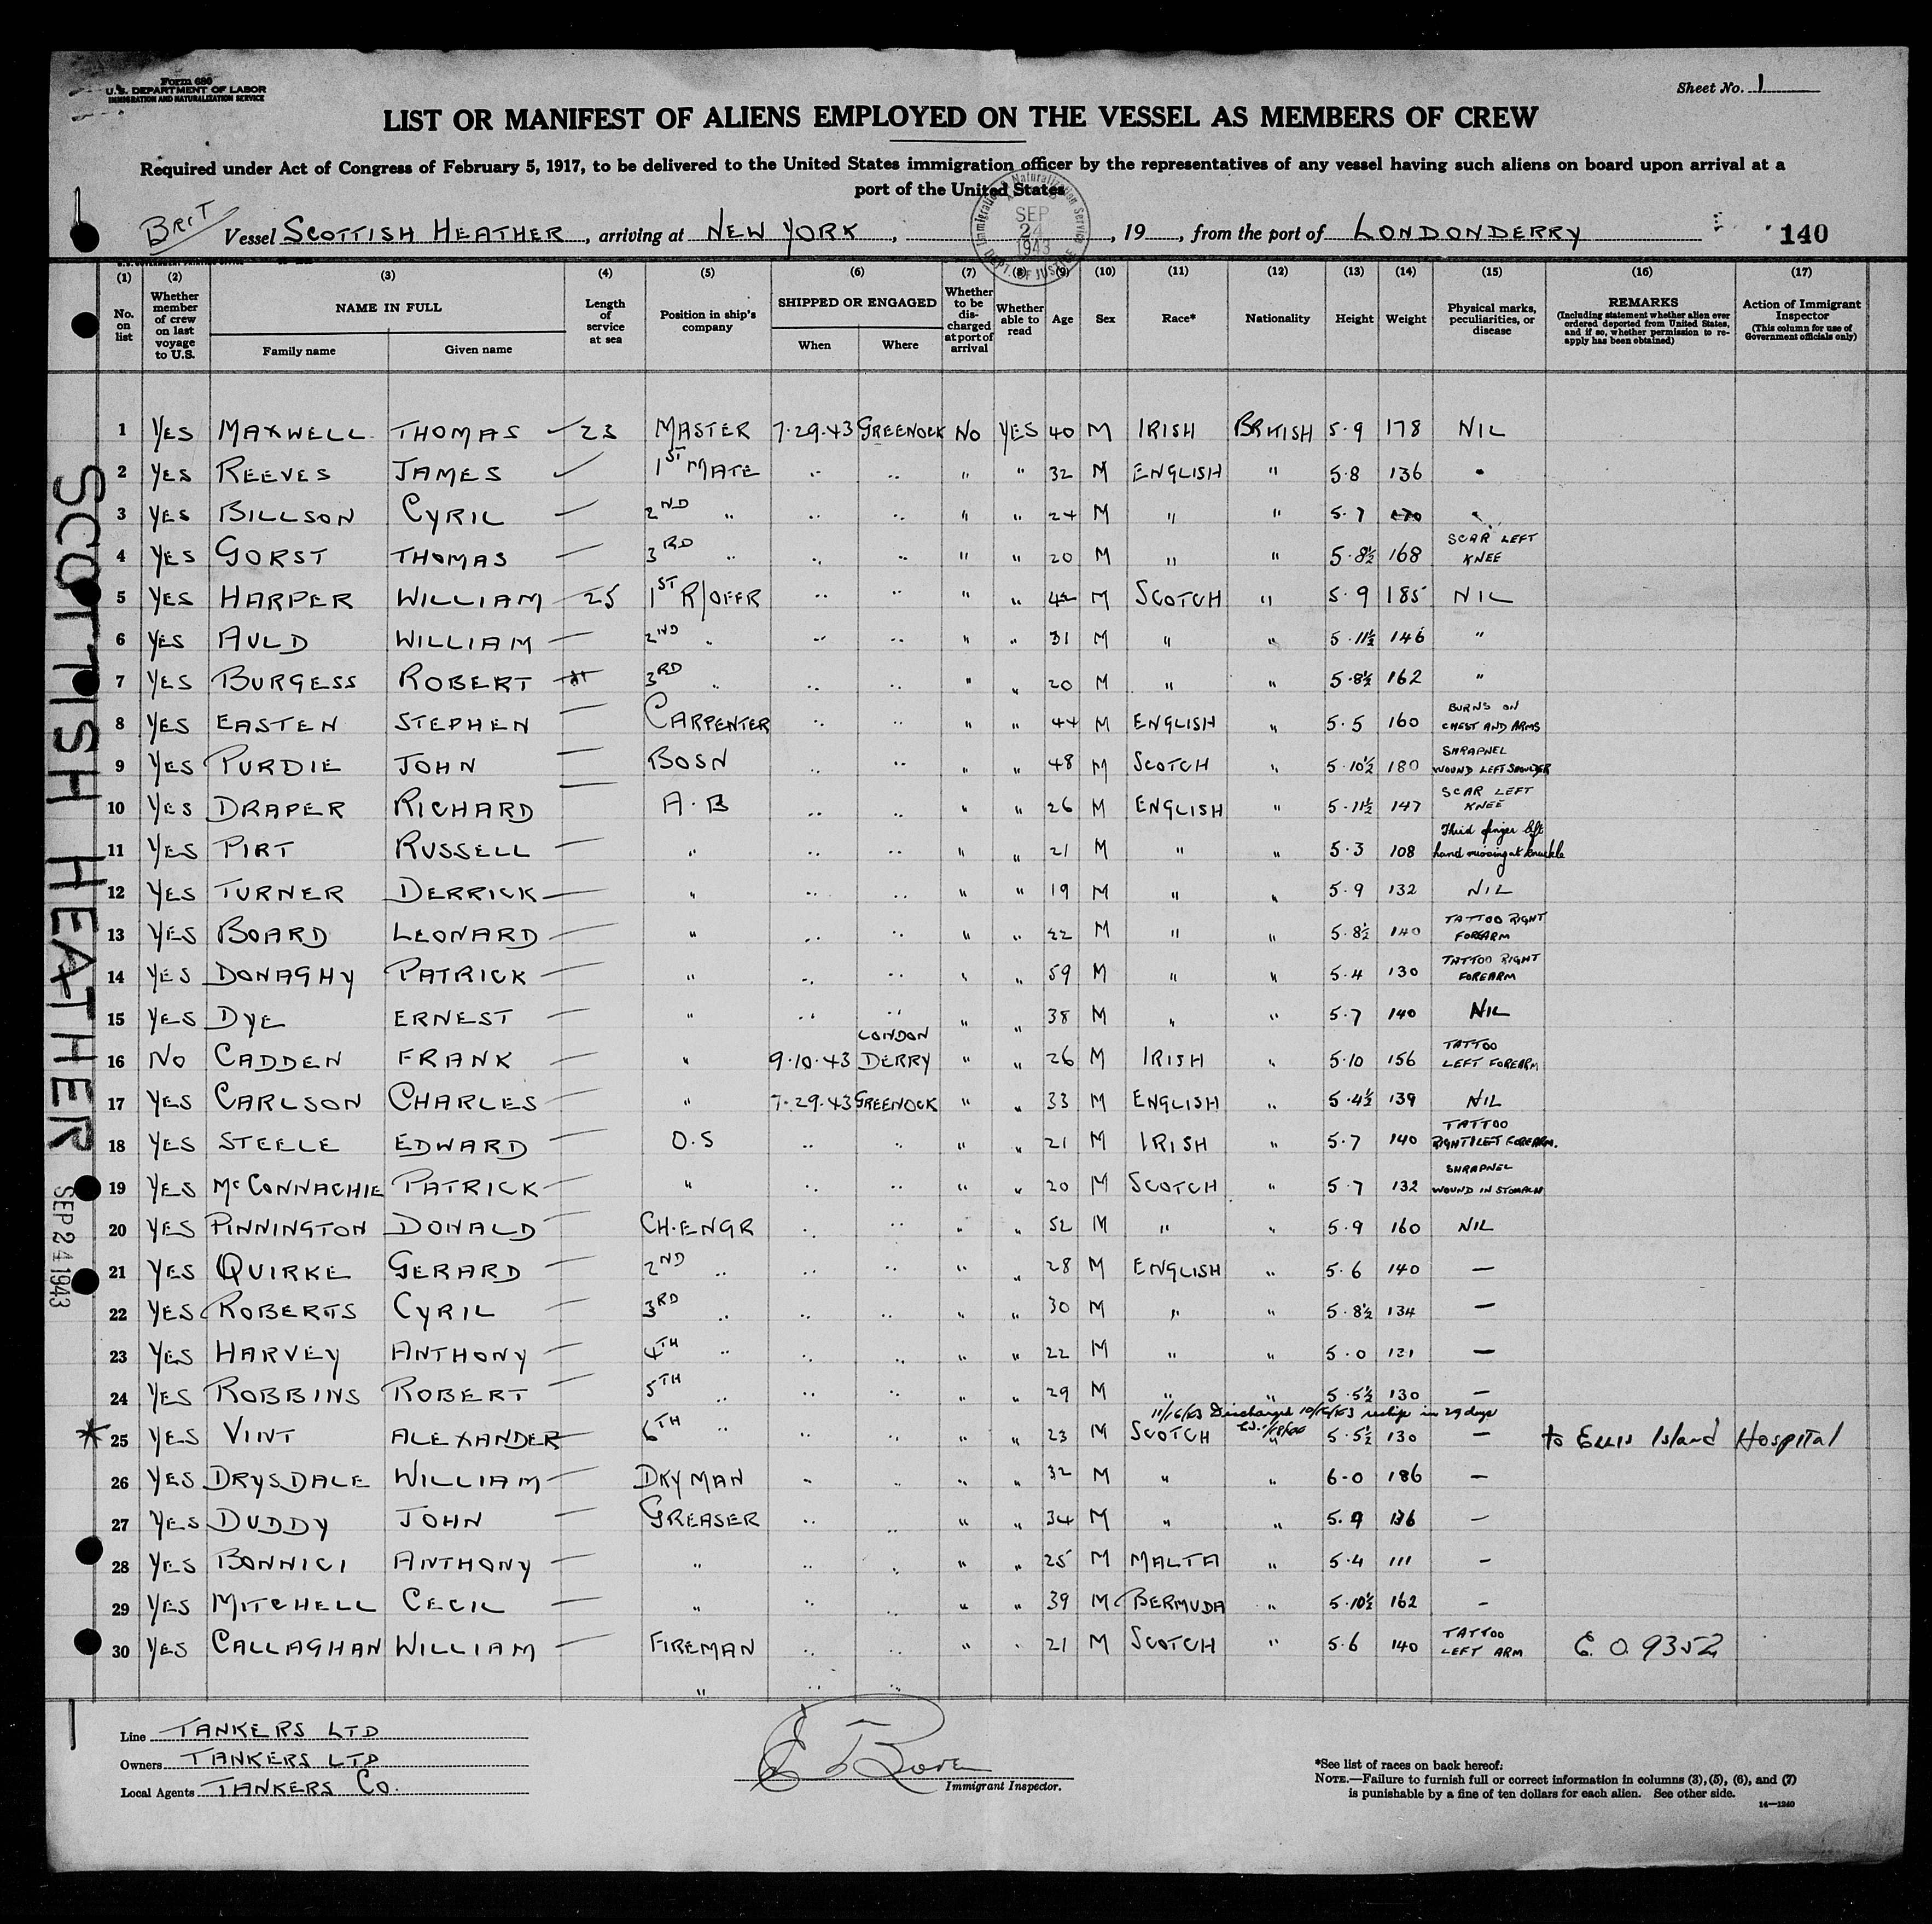 Form 680
U. S. DEPARTMENT OF LABOR
IMMIGRATION AND NATURALIZATION SERVICE
Sheet No. 1
LIST OR MANIFEST OF ALIENS EMPLOYED ON THE VESSEL AS MEMBERS OF CREW
Required under Act of Congress of February 5, 1917, to be delivered to the United States immigration officer by the representatives of any vessel having such aliens on board upon arrival at a
port of the United States
Immigration & Naturalization Service SEP 24 1943 DEPT. OF JUSTICE
BRIT Vessel SCOTTISH HEATHER, arriving at NEW YORK, , 19 , from the port of LONDONDERRY 140
(1) (2) (3) (4) (5) (6) (7) (8) (9) (10) (11) (12) (13) (14) (15) (16) (17)
No. on list
Whether member of crew on last voyage to U.S.
NAME IN FULL
Family name Given name
Length of service at sea
Position in ship's company
SHIPPED OR ENGAGED
When Where
Whether to be discharged at port of arrival
Whether able to read
Age
Sex
Race*
Nationality
Height
Weight
Physical marks, peculiarities, or disease
REMARKS
(Including statement whether alien ever ordered deported from United States, and if so, whether permission to reapply has been obtained)
Action of Immigrant Inspector
(This column for use of Government officials only)
1 YES MAXWELL THOMAS 23 MASTER 7-29-43 GREENOCK NO YES 40 M IRISH BRITISH 5-9 178 NIL
2 YES REEVES JAMES 1ST MATE " " " " 32 M ENGLISH " 5-8 136 "
3 YES BILLSON CYRIL 2ND " " " " " 24 M " " 5-7 "
4 YES GORST THOMAS 3RD " " " " " 20 M " " 5-8½ 168 SCAR LEFT KNEE
5 YES HARPER WILLIAM 25 1ST R/OFFR " " " " 42 M SCOTCH " 5-9 185 NIL
6 YES AULD WILLIAM 2ND " " " " " 31 M " " 5-11½ 146 "
7 YES BURGESS ROBERT 3RD " " " " " 20 M " " 5-8½ 162 "
8 YES EASTEN STEPHEN CARPENTER " " " " 44 M ENGLISH " 5-5 160 BURNS ON CHEST AND ARMS
9 YES PURDIE JOHN BOSN " " " " 48 M SCOTCH " 5-10½ 180 SHRAPNEL WOUND LEFT SHOULDER
10 YES DRAPER RICHARD A.B " " " " 26 M ENGLISH " 5-11½ 147 SCAR LEFT KNEE
11 YES PIRT RUSSELL " " " " " 21 M " " 5-3 108 Third finger left hand missing at knuckle
12 YES TURNER DERRICK " " " " " 19 M " " 5-9 132 NIL
13 YES BOARD LEONARD " " " " " 22 M " " 5-8½ 140 TATTOO RIGHT FOREARM
14 YES DONAGHY PATRICK " " " " " 59 M " " 5-4 130 TATTOO RIGHT FOREARM
15 YES DYE ERNEST " " " " " 38 M " " 5-7 140 NIL
16 NO CADDEN FRANK " 9-10-43 LONDON DERRY " " 26 M IRISH " 5-10 156 TATTOO LEFT FOREARM
17 YES CARLSON CHARLES " 7-29-43 GREENOCK " " 33 M ENGLISH " 5-4½ 139 NIL
18 YES STEELE EDWARD O.S " " " " 21 M IRISH " 5-7 140 TATTOO RIGHT & LEFT FOREARM.
19 YES McCONNACHIE PATRICK " " " " " 20 M SCOTCH " 5-7 132 SHRAPNEL WOUND IN STOMACH
20 YES PINNINGTON DONALD CH.ENGR " " " " 52 M " " 5-9 160 NIL
21 YES QUIRKE GERARD 2ND " " " " " 28 M ENGLISH " 5-6 140 —
22 YES ROBERTS CYRIL 3RD " " " " " 30 M " " 5-8½ 134 —
23 YES HARVEY ANTHONY 4TH " " " " " 22 M " " 5-0 121 —
24 YES ROBBINS ROBERT 5TH " " " " " 29 M " " 5-5½ 130 —
11/16/43 Discharged 10/16/43 reship in 29 days
* 25 YES VINT ALEXANDER 6TH " " " " " 23 M SCOTCH " 5-5½ 130 — to Ellis Island Hospital
26 YES DRYSDALE WILLIAM DKYMAN " " " " 32 M " " 6-0 186 —
27 YES DUDDY JOHN GREASER " " " " 34 M " " 5-9 136 —
28 YES BONNICI ANTHONY " " " " " 25 M MALTA " 5-4 111 —
29 YES MITCHELL CECIL " " " " " 39 M BERMUDA " 5-10½ 162 —
30 YES CALLAGHAN WILLIAM FIREMAN " " " " 21 M SCOTCH " 5-6 140 TATTOO LEFT ARM E.O. 9352
" " "
SCOTTISH HEATHER
SEP 24 1943
Line TANKERS LTD
Owners TANKERS LTD
Local Agents TANKERS CO.
Immigrant Inspector.
*See list of races on back hereof.
NOTE.—Failure to furnish full or correct information in columns (3), (5), (6), and (7)
is punishable by a fine of ten dollars for each alien. See other side.
14—1240